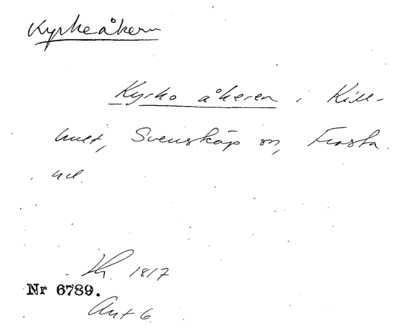 Kyrkeåkern
Kyrko åkeren i Kill-
hult, Svensköp sn, Frosta
hd.
1817
Nr 6789.
Akt 6